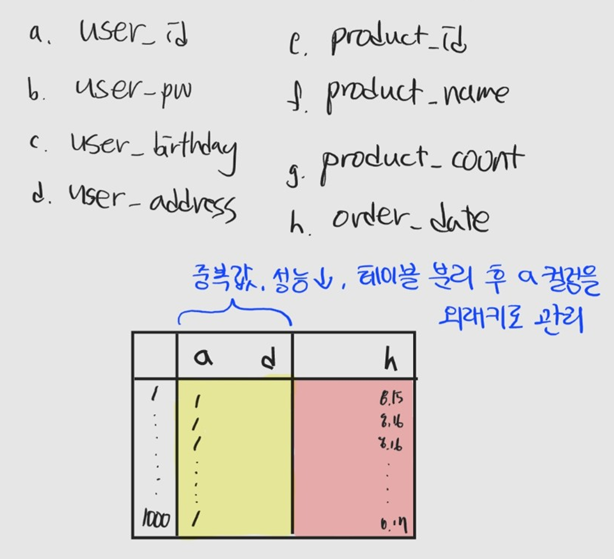 a. user_id
b. user-pw
c. user_birthday
d. user-address
e. product_id
f. product_name
g. product_count
h. order_date
중복값, 성능↓, 테이블 분리 후 a컬럼을
외래키로 관리
a d h
1 1 8.15
1 8.16
1 8.16
1000 1